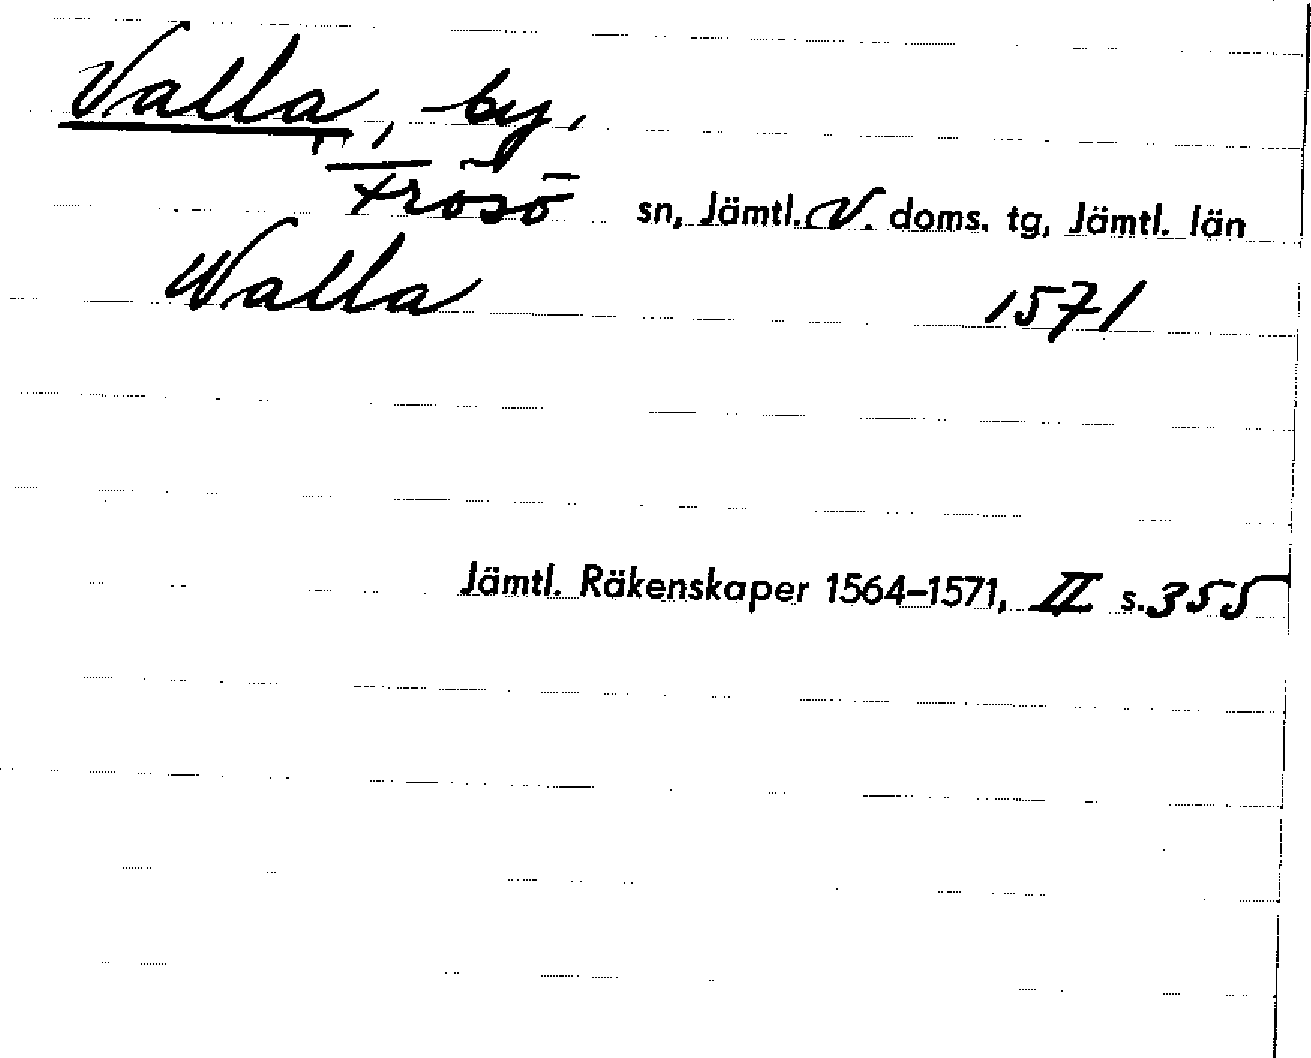 Valla, by,
Frösö sn, Jämtl. V. doms. tg, Jämtl. län
Walla 1571
Jämtl. Räkenskaper 1564-1571, II s. 355